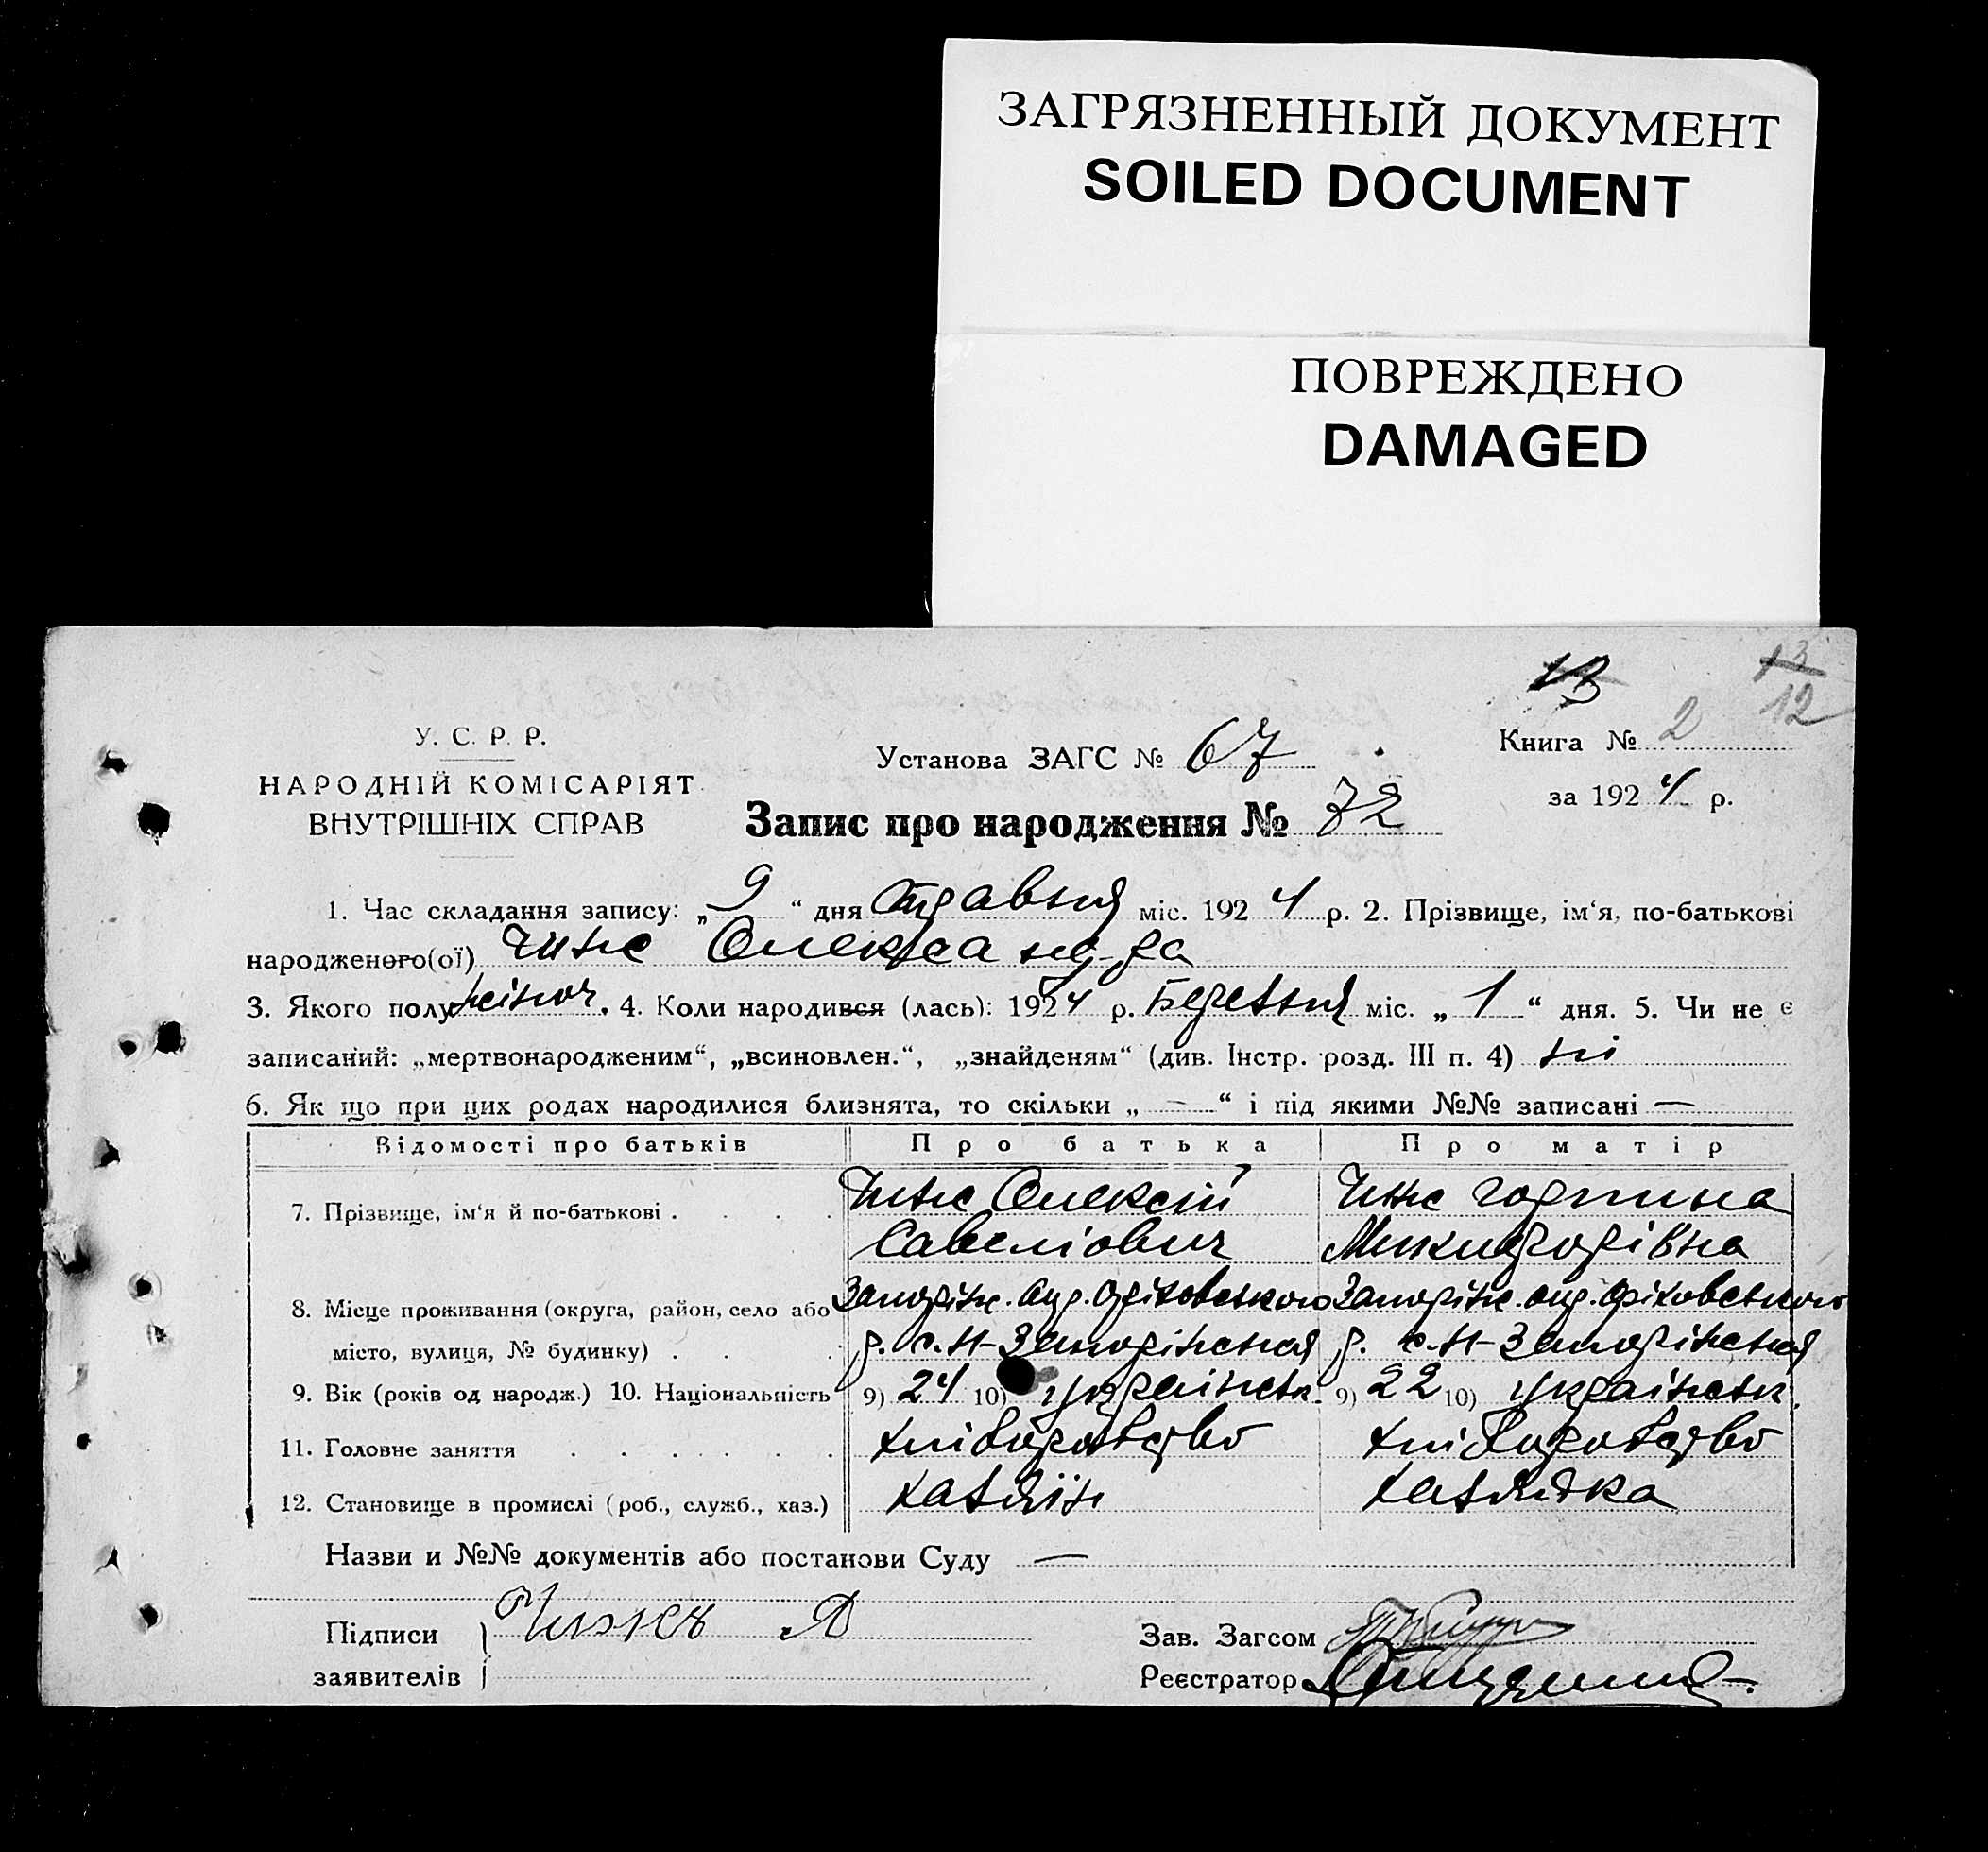 ЗАГРЯЗНЕННЫЙ ДОКУМЕНТ
SOILED DOCUMENT
ПОВРЕЖДЕНО
DAMAGED
13
13
12
У. С. Р. Р.
НАРОДНІЙ КОМІСАРІЯТ
ВНУТРІШНІХ СПРАВ
Установа ЗАГС № 67
Книга № 2
за 1924 р.
Запис про народження № 72
1. Час складання запису: „9“ дня травня міс. 1924 р. 2. Прізвище, ім‘я, по-батькові
народженого(ої) Чиже Олекса
3. Якого полу жіноч. 4. Коли народився (лась): 1924 р. Березня міс. „1“ дня. 5. Чи не є
записаний: „мертвонародженим“, „всиновлен.“, „знайденям“ (див. Інстр. розд. III п. 4) ні
6. Як що при цих родах народилися близнята, то скільки „—“ і під якими №№ записані —
Відомості про батьків Про батька Про матір
7. Прізвище, ім‘я й по-батькові . . . . Чиже Олексій Чиже Горпина
Савеліович Микифорівна
8. Місце проживання (округа, район, село або Запоріж. окр. Оріховського Запоріж. окр. Оріховського
місто, вулиця, № будинку) . . . р. с. Н-Запоріжська р. с. Н-Запоріжська
9. Вік (років од народж.) 10. Національність 9) 24 10) українськ. 9) 22 10) українськ.
11. Головне заняття . . . . . . хліборобство хліборобство
12. Становище в промислі (роб., служб., хаз.) хазяїн хазяйка
Назви и №№ документів або постанови Суду —
Підписи
заявителів
Зав. Загсом
Реєстратор